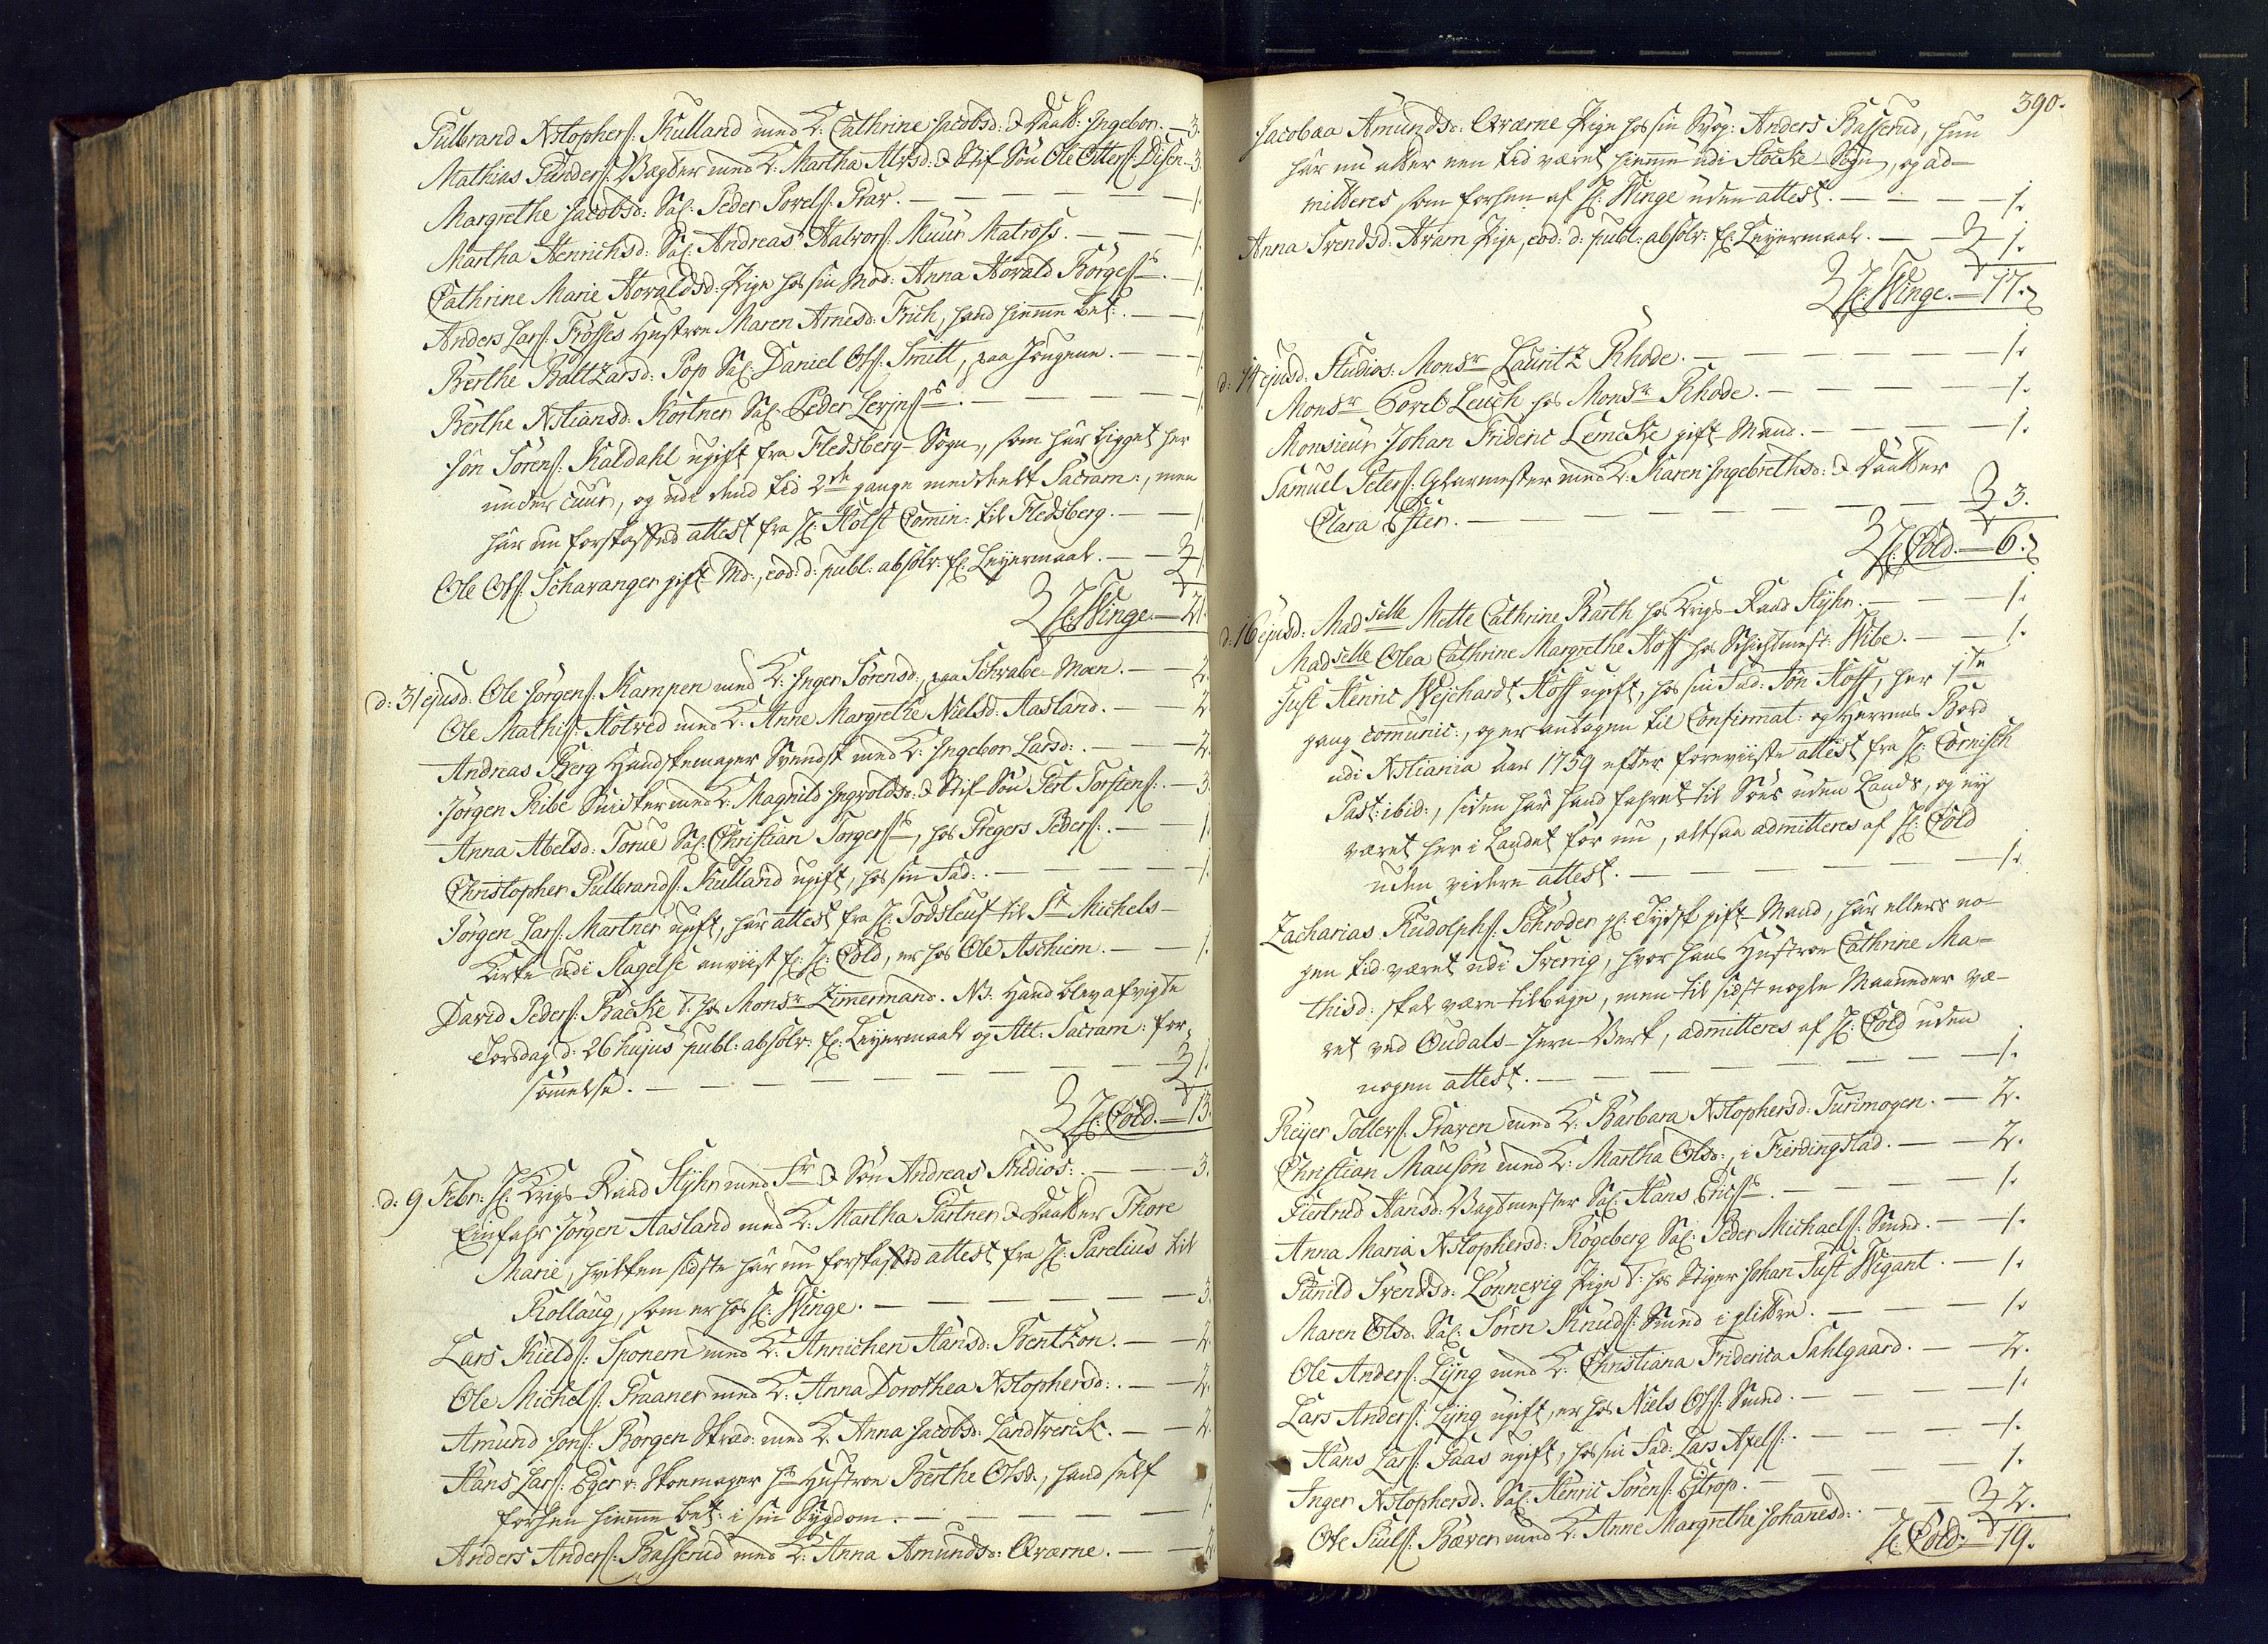 Gulbrand Xstophers: Kulland med K: Cathrine Jacobsd: & Daatt: Ingebor. — 3.
Mathias Gunders: Vægter med K: Martha Alvsd: & Stif Sön Ole Otters: Disen — 3
Margrethe Jacobsd: Sal: Peder Povels: Prav. — 1.
Martha Henrichsd: Sal: Andreas Halvors: Muur Matross. — 1.
Cathrine Marie Hovaldsd: Pige hos sin Mod: Anna Hovald Börges:s — 1.
Anders Lars: Frösses Hustroe Maren Arnesd: Frich, hand hiemme bet: — 1.
Berthe Baltzarsd: Pop Sal: Daniel Ols: Smitt, paa Jongene. — 1.
Berthe Xstiansd: Körtner Sal: Peder Levins:s — 1.
Jön Sörens: Kaldahl ugift fra Fledsberg-Sogn, som har ligget her
under cuur, og udi dend tid 2de gange meddeelt Sacram:, men
har nu forskaffed attest fra H: Holst Comin: til Fledsberg. — 1.
Ole Ols: Schavanger gift Md:, eod: d: publ: absolv: f: Leyermaal. — 1.
H: Winge. — 21.
d: 31 ejusd: Ole Jörgens: Kampen med K: Inger Sörensd:, paa Schrabe-Moen. — 2.
Ole Mathis: Kotved med K: Anne Margrethe Nielsd: Aasland. — 2
Andreas Berg Handskemager Svendsk med K: Ingebor Larsd: — 2.
Jörgen Ribe Snidker med K: Magnild Ingvoldsd: & Stif Sön Gert Torstens: — 3.
Anna Abelsd: Torue Sal: Christian Torgers:s, hos Gregers Peders: — 1.
Christopher Gulbrands: Kulland ugift, hos sin Fad: — 1.
Jörgen Lars: Martner ugift, har attest fra H: Godsleuf til St Michels-
Kirke udi Slagelse anviist f: H: Cold, er hos Ole Aschiem. — 1.
David Peders: Backe T: hos Monsr Zimermand. NB. Hand blev afvigte
Torsdag d: 26 hujus publ: absolv: f: Leyermaal og Alt: Sacram: for-
sömmelse. — 1.
H: Cold. — 13.
d: 9 Febr: H: Krigs-Raad Stÿhr med Fr & Sön Andreas Studios: — 3.
Einfahr Jörgen Aasland med K: Martha Gürtner & Daatter Thore
Marie, hvilken sidste har nu forskaffed attest fra H: Parelius til
Rollaug, som er hos H: Winge. — 3.
Lars Kields: Sponem med K: Annichen Hansd: Bentzön. — 2.
Ole Michels: Praaner med K: Anna Dorothea Xstophersd: — 2.
Amund Jons: Borgen Skræd: med K: Anna Jacobsd: Landverck. — 2.
Hans Lars: Eger v: Skoemager hs Hustroe Berthe Olsd:, hand self
forhen hiemme bet: i sin Sygdom. — 1.
Anders Anders: Basserud med K: Anna Amundsd: Qværne. — 2
390.
Jacobaa Amundsd: Qværne Pige hos sin Svog: Anders Basserud, hun
har nu atter een tid været hiemme udi Stocke Sogn, og ad-
mitteres som forhen af H: Winge uden attest. — 1.
Anna Svendsd: Aram Pige, eod: d: publ: absolv: f: Leyermaal. — 1.
H: Winge. — 17.
d: 14 ejusd: Studios: Monsr Lauritz Rhode. — 1.
Monsr Povel Leuch hos Monsr Rhode. — 1.
Monsieur Johan Frideric Lemcke gift Mand. — 1.
Samuel Peters: Glarmester med K: Karen Ingebrethsd: & Daatter
Clara Ester. — 3.
H: Cold. — 6.
d: 16 ejusd: Madselle Mette Cathrine Barth hos Krigs-Raad Stÿhr. — 1.
Madselle Olea Cathrine Margrethe Hoff hos Schichtmest: Wibe. — 1.
Just Henric Weichardt Hoff ugift, hos sin Fad: Jön Hoff, her 1te
gang comunic:, og er antagen til Confirmat: og Herrens Bord
udi Xstiania Aar 1759 efter foreviiste attest fra H: Cornisch
Past: ibid:, siden har hand fahret til Söes uden Lands, og eÿ
været her i Landet för nu, altsaa admitteres af H: Cold
uden videre attest. — 1.
Zacharias Rudolphs: Schröder gl: Tydsk gift Mand, har ellers no-
gen tid været udi Sverrig, hvor hans Hustroe Cathrine Ma-
thisd: skal være tilbage, men til sidst nogle Maaneder væ-
ret ved Oudals-Jern-Verk, admitteres af H: Cold uden
nogen attest. — 1.
Reÿer Tollers: Graven med K: Barbara Xstophersd: Turimogen. — 2.
Christian Mausön med K: Martha Olsd:, i Fierdingstad. — 2.
Giertrud Hansd: Vagtmester Sal: Hans Erics:s — 1.
Anna Maria Xstophersd: Rögeberg Sal: Peder Michaels: Smed. — 1.
Gunild Svendsd: Lönnevig Pige T: hos Stiger Johan Just Wigant. — 1.
Maren Olsd: Sal: Sören Knuds: Smed i glittre. — 1.
Ole Anders: Lÿng med K: Christiana Friderica Sahlgaard. — 2.
Lars Anders: Lÿng ugift, er hos Niels Ols: Smed. — 1.
Hans Lars: Gaas ugift, hos sin Fad: Lars Axels: — 1.
Inger Xstophersd: Sal: Henric Sörens: Estrop. — 1.
Ole Siuls: Bæver med K: Anne Margrethe Johanesd: — 2.
H: Cold: — 19.